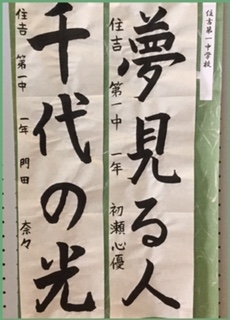 住吉第一中学校
夢見る人
住吉 第一中 一年 初瀬心優
千代の光
住吉 第一中 一年 門田 奈々